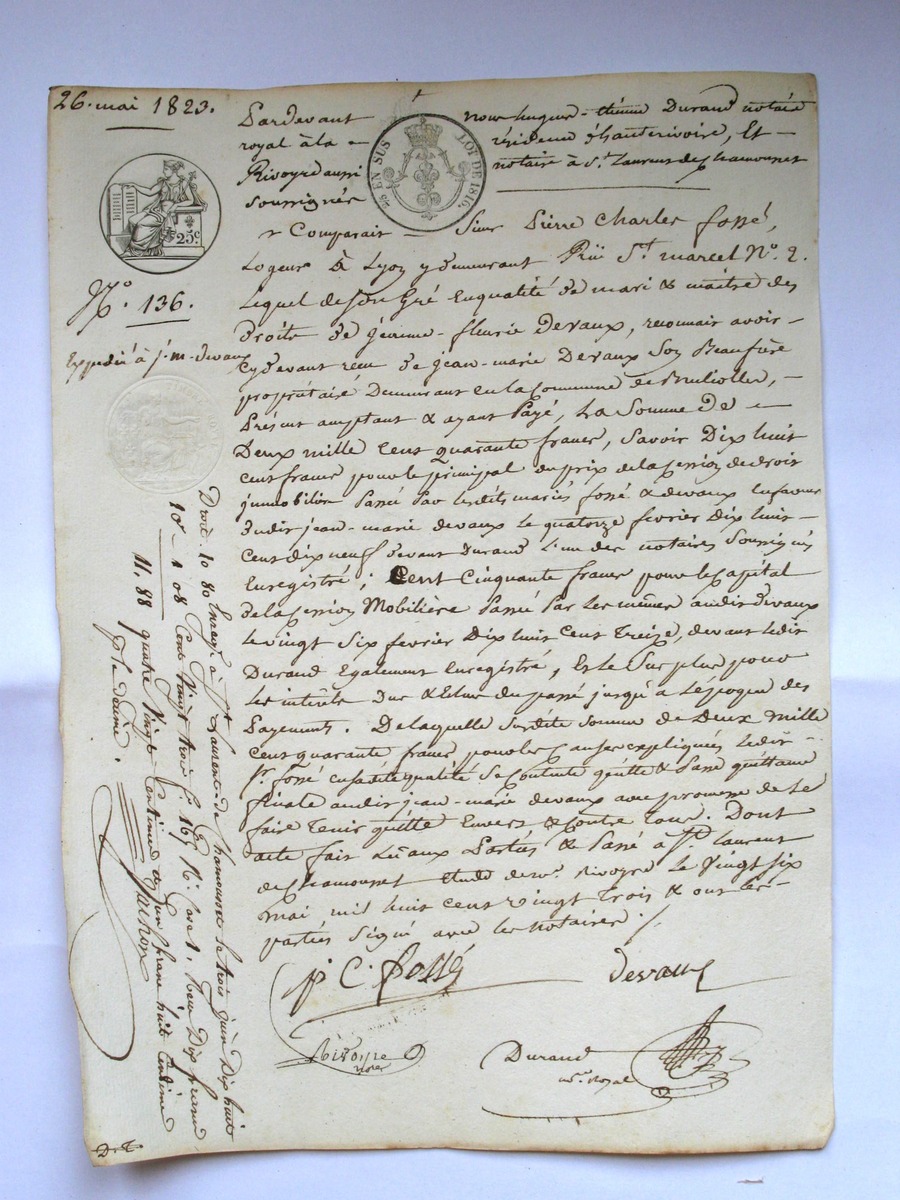 26. mai 1823.
Pardevant nous hugue - étienne Durand notaire
royal à la résidence d'hauterivoire, Et
Rivoyre aussi notaire à St. Laurent de Chamousset
soussignés
25 EN SUS LOI DE 1816.
25c
Comparait Sieur Pierre Charles fossé,
Logeur à Lyon y demeurant Rüe St. marcel No. 2.
Lequel de son Gré Enqualité de mari & maitre des
No. 136.
Droits de jérime - fleurie Devaux, reconnait avoir
Expédié à j. m. devaux
Cydevant reçu de jean-marie Devaux Son Beaufrère
propriétaire Demeurant en la Commune de Brullioles,
Présent acceptant & ayant Payé, La Somme De
Deux mille Cent quarante francs, Savoir Dix huit
cent francs pour le principal du prix de la Cession de droit
immobilier Passée Par lesdits mariés fossé & devaux en faveur
dudit jean-marie devaux le quatorze février Dix huit
Cent dix neuf devant Durand L'un des notaires Soussignés
Enregistré ; Cent Cinquante francs pour le Capital
de la Cession Mobilière Passée Par les mêmes audit devaux
le vingt Six février Dix huit Cent Treize, devant ledit
Durand Egalement Enregistré, Et le Surplus pour
Les intérêts Dus & Echus du passé jusqu'à l'époque des
Payements. De laquelle Susdite Somme de Deux mille
Cent quarante francs pour les Causes expliquées ledit
Sr. fossé en sadite qualité Se Contente quitte & Passe quittance
finale audit jean-marie devaux avec promesse de le
faire Tenir quitte Envers & Contre Tous. Dont
acte fait Lu aux Parties & Passé à St. Laurent
de Chamousset étude de me. Rivoyre Le Vingt Six
mai mil huit cent vingt Trois & ont les
parties Signé avec les notaires.
p C. fossé devaux
Rivoyre noire
Durand
nre. Royal
Droit. 10 80 Enregé. à St. Laurent de Chamousset le trois juin Dix huit
10e - 1 08 Cent Vingt trois fo. 167 Ro. Case 1. reçu Dix francs
11. 88 quatre Vingt Centimes dix. un franc huit Centimes
D. T.